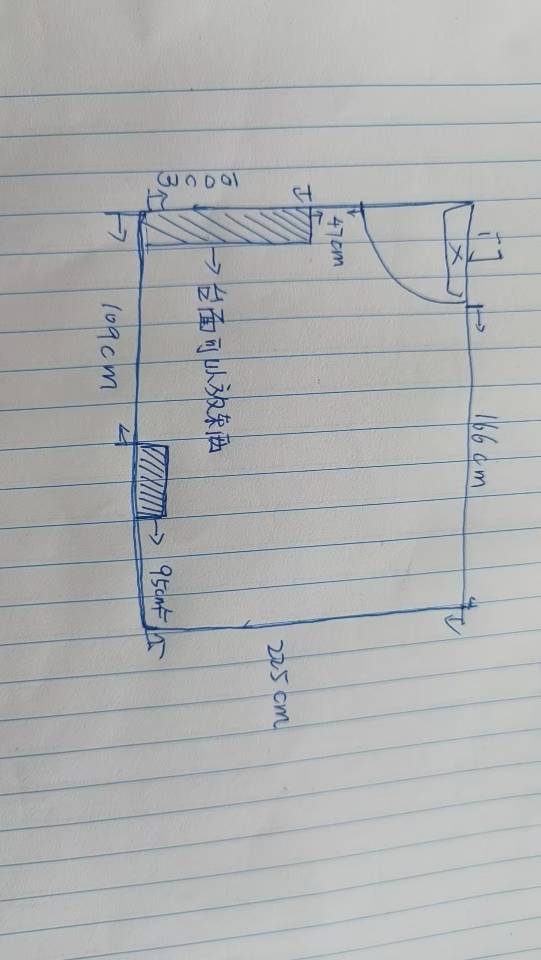 门
X
166cm
47cm
100cm
台面可以放东西
109cm
95cm
225cm